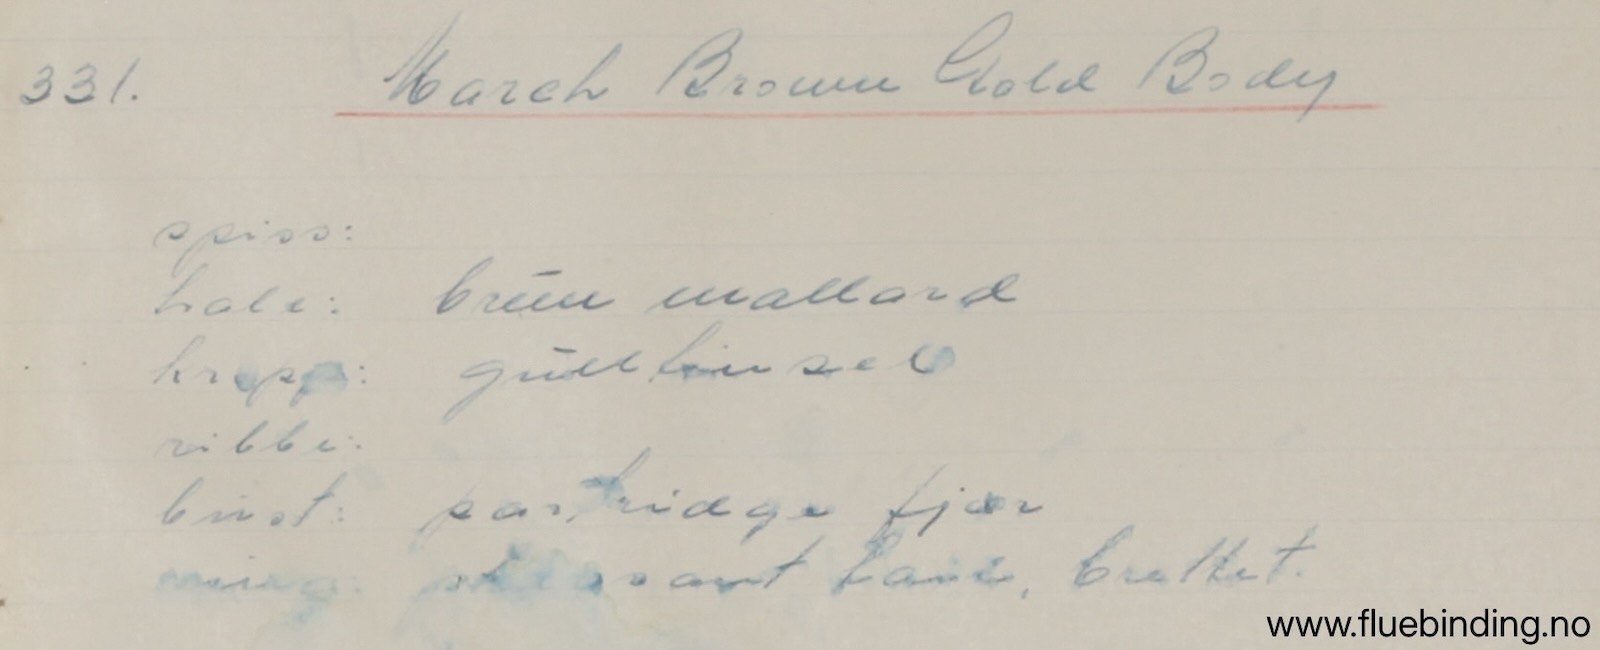 331. March Brown Gold Body
spiss:
hale: brun mallard
kropp: gull tinsel
ribbe:
bust: partridge fjær
ving: brettet.
www.fluebinding.no